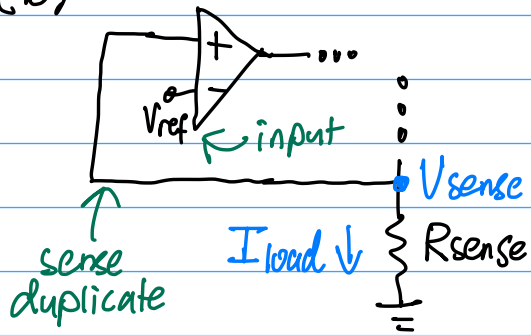 (b)
+
−
...
Vref
input
Vsense
Iload ↓
Rsense
sense
duplicate